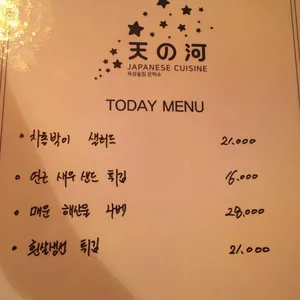 天の河
JAPANESE CUISINE
옥상술집 은하수
TODAY MENU
• 차돌박이 샐러드 21.000
• 연근 새우 샌드 튀김 16.000
• 매운 해산물 나베 28.000
• 흰살생선 튀김 21.000